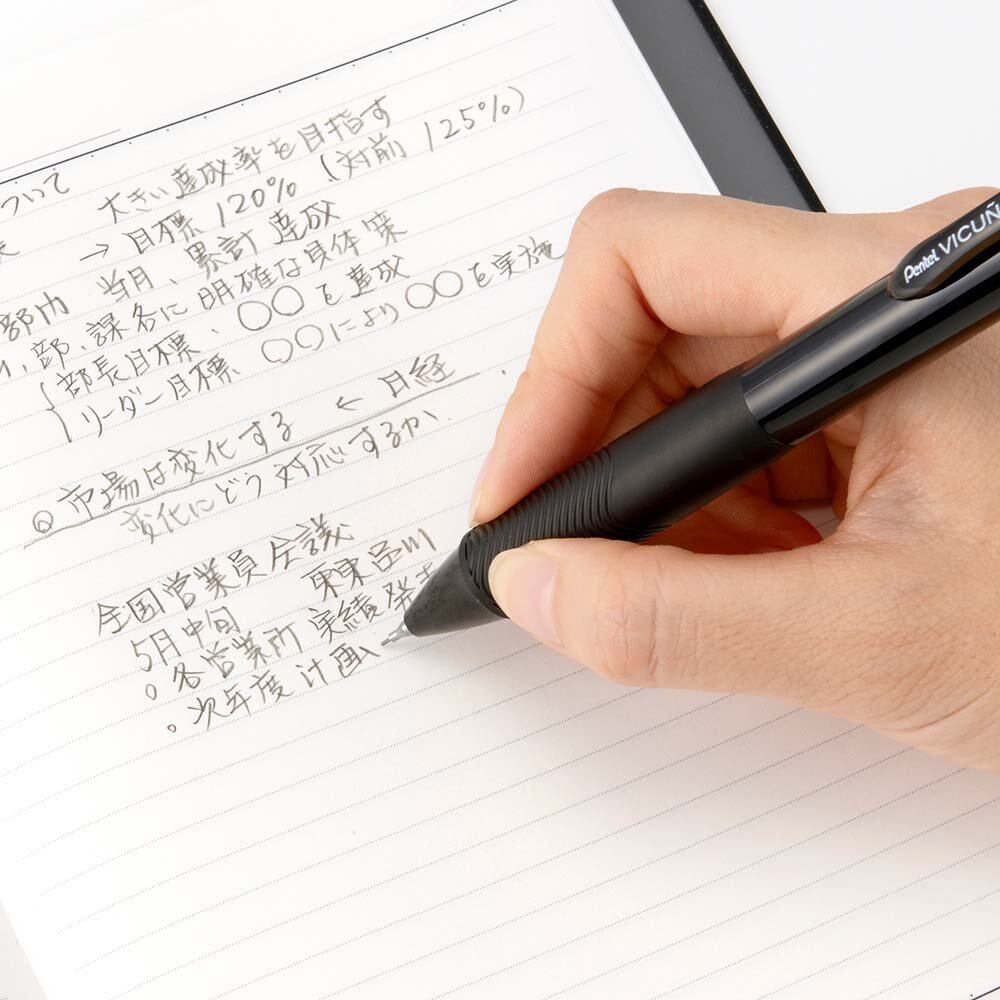 ついて 大きい達成率を目指す
→ 目標 120% (対前 125%)
部内 当月、累計達成
部、課各に明確な具体策
部長目標、○○を達成
リーダー目標 ○○により○○を実施
◎ 市場は変化する ← 日経
変化にどう対応するか、
全国営業員会議
5月中旬 東京品川
○各営業所 実績発
○次年度計画、
Pentel VICUÑ